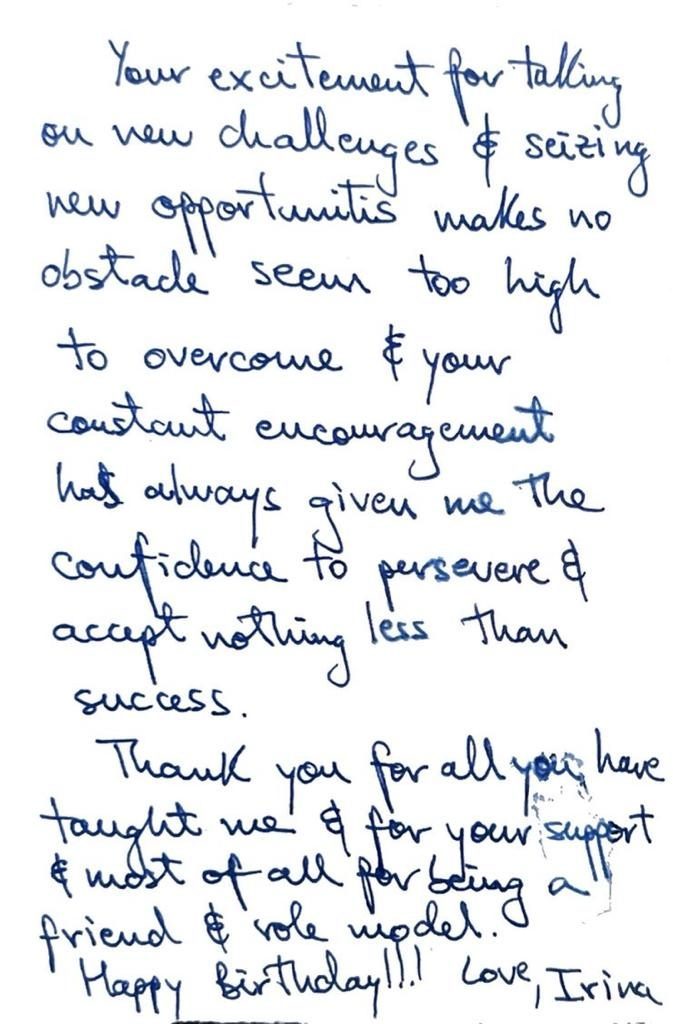 Your excitement for taking
on new challenges & seizing
new opportunitis makes no
obstacle seem too high
to overcome & your
constant encouragement
has always given me the
confidence to persevere &
accept nothing less than
success.
Thank you for all you have
taught me & for your support
& most of all for being a
friend & role model.
Happy Birthday!!! Love, Irina